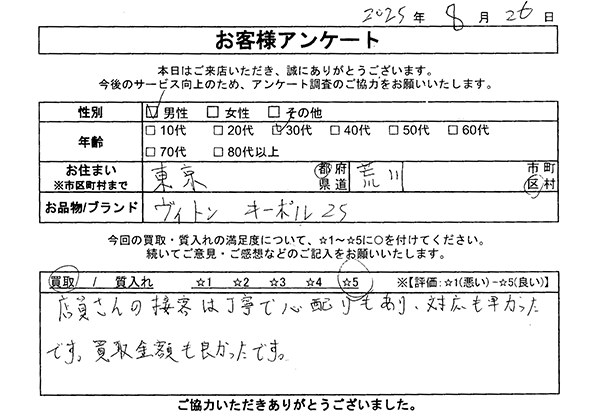 2025年 8月 26日
お客様アンケート
本日はご来店いただき、誠にありがとうございます。
今後のサービス向上のため、アンケート調査のご協力をお願いいたします。
性別 ☑男性 □女性 □その他
年齢 □10代 □20代 ☑30代 □40代 □50代 □60代
□70代 □80代以上
お住まい ※市区町村まで 東京 都府県道 荒川 市町区村
お品物/ブランド ヴィトン キーポル25
今回の買取・質入れの満足度について、☆1～☆5に○を付けてください。
続いてご意見・ご感想などのご記入をお願いいたします。
買取 / 質入れ ☆1 ☆2 ☆3 ☆4 ☆5 ※【評価:☆1(悪い)-☆5(良い)】
店員さんの接客は丁寧で心配りもあり、対応も早かった
です。買取金額も良かったです。
ご協力いただきありがとうございました。